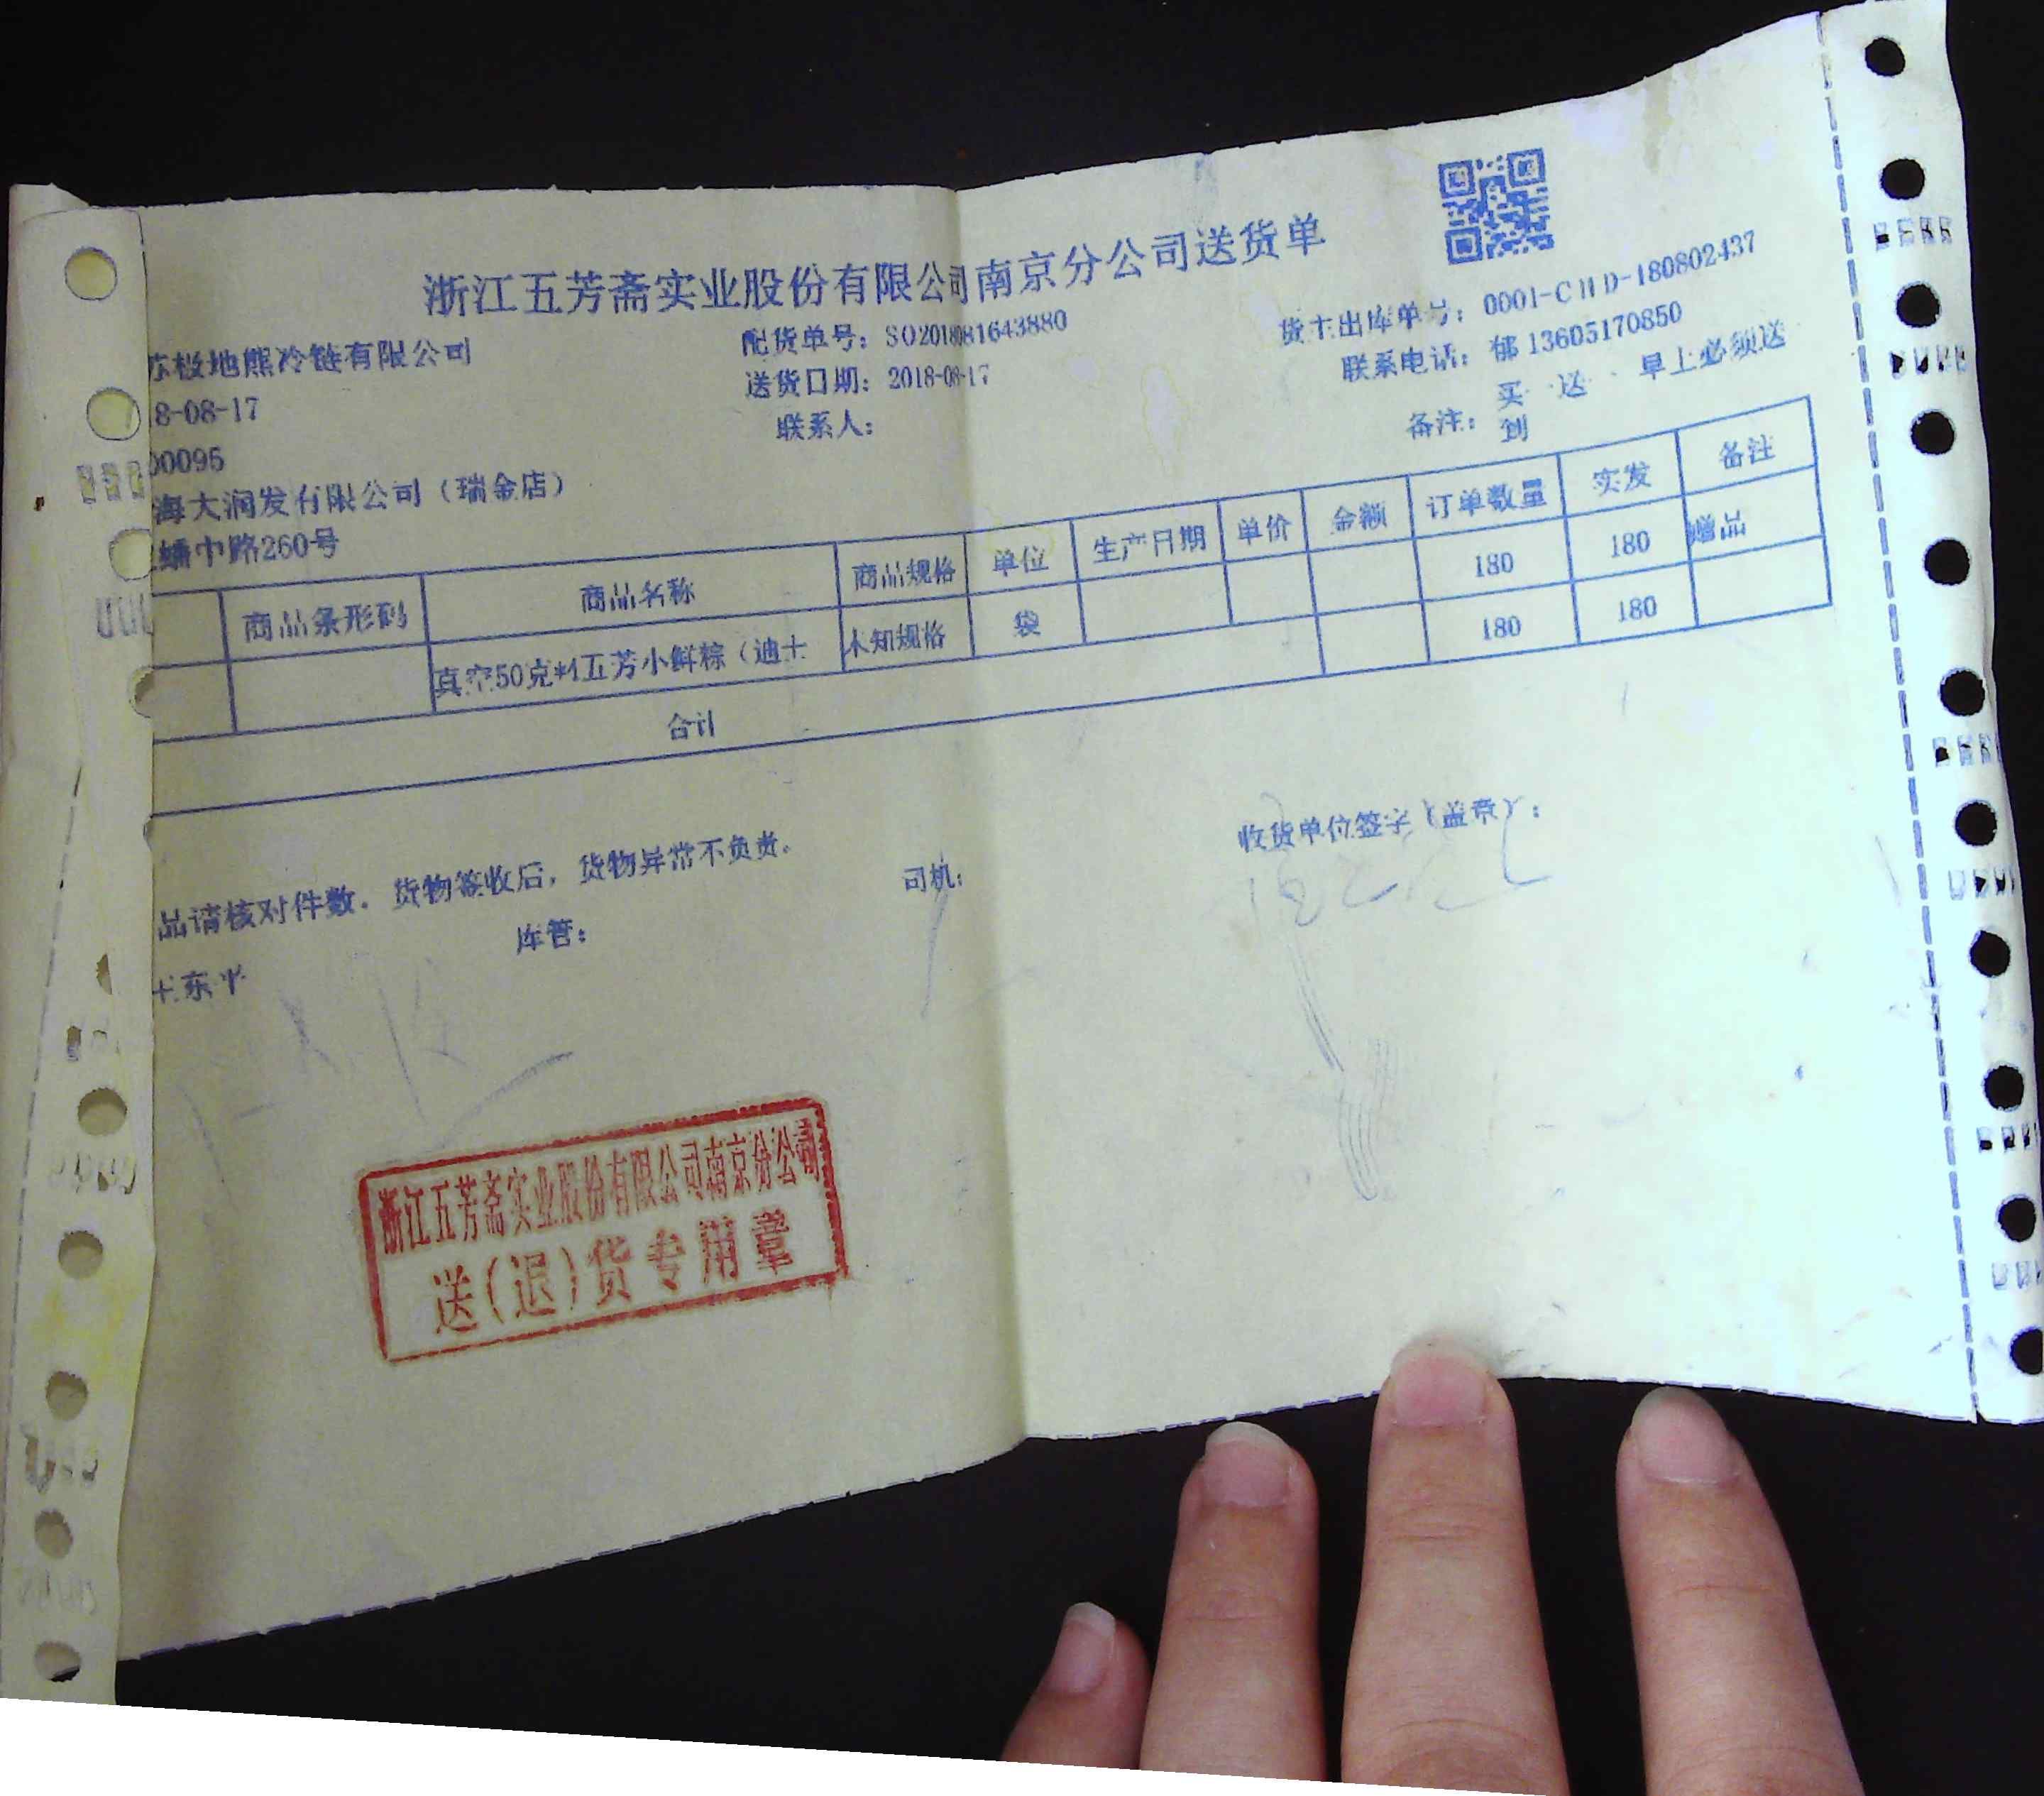 浙江五芳斋实业股份有限公司南京分公司送货单
苏极地熊冷链有限公司 配货单号：SO2018081643880 货主出库单号：0001-CHD-180802437
8-08-17 送货日期：2018-08-17 联系电话：郁 13605170850
00095 联系人： 备注：买 送 早上必须送到
海大润发有限公司（瑞金店）
蟠中路260号
商品条形码 商品名称 商品规格 单位 生产日期 单价 金额 订单数量 实发 备注
真空50克*1五芳小鲜粽（迪士 未知规格 袋 180 180 赠品
合计 180 180
品请核对件数。货物签收后，货物异常不负责。
东平 库管： 司机： 收货单位签字（盖章）：
浙江五芳斋实业股份有限公司南京分公司
送(退)货专用章